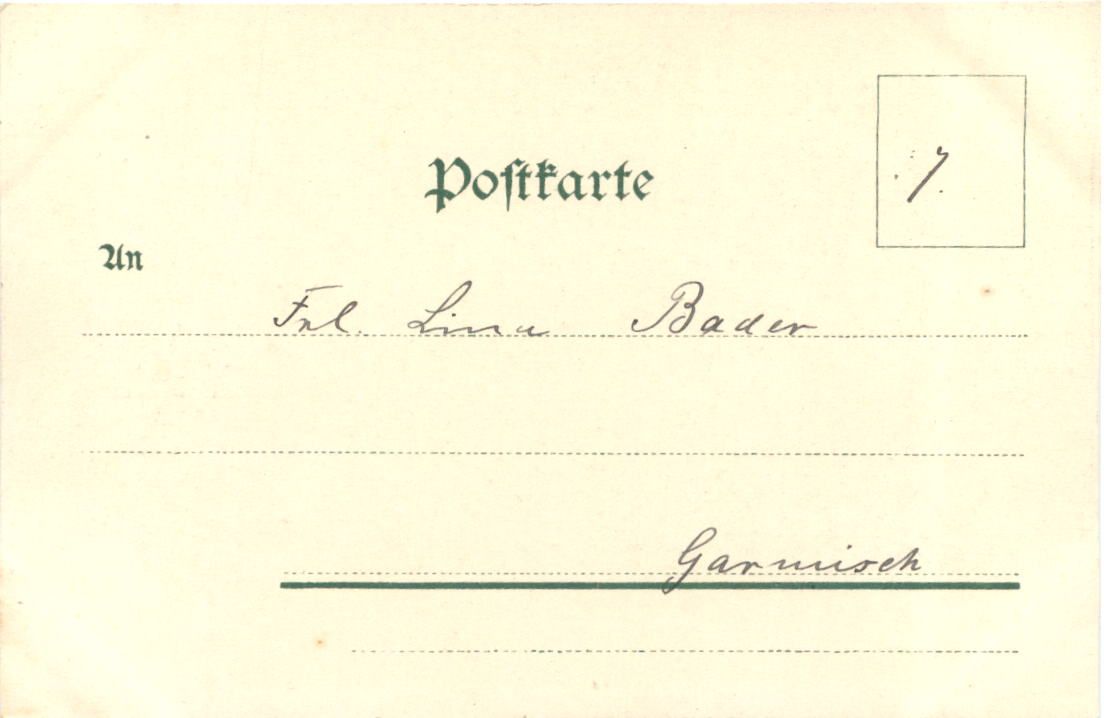 Postkarte
7.
An
Frl. Lina Bader
Garmisch